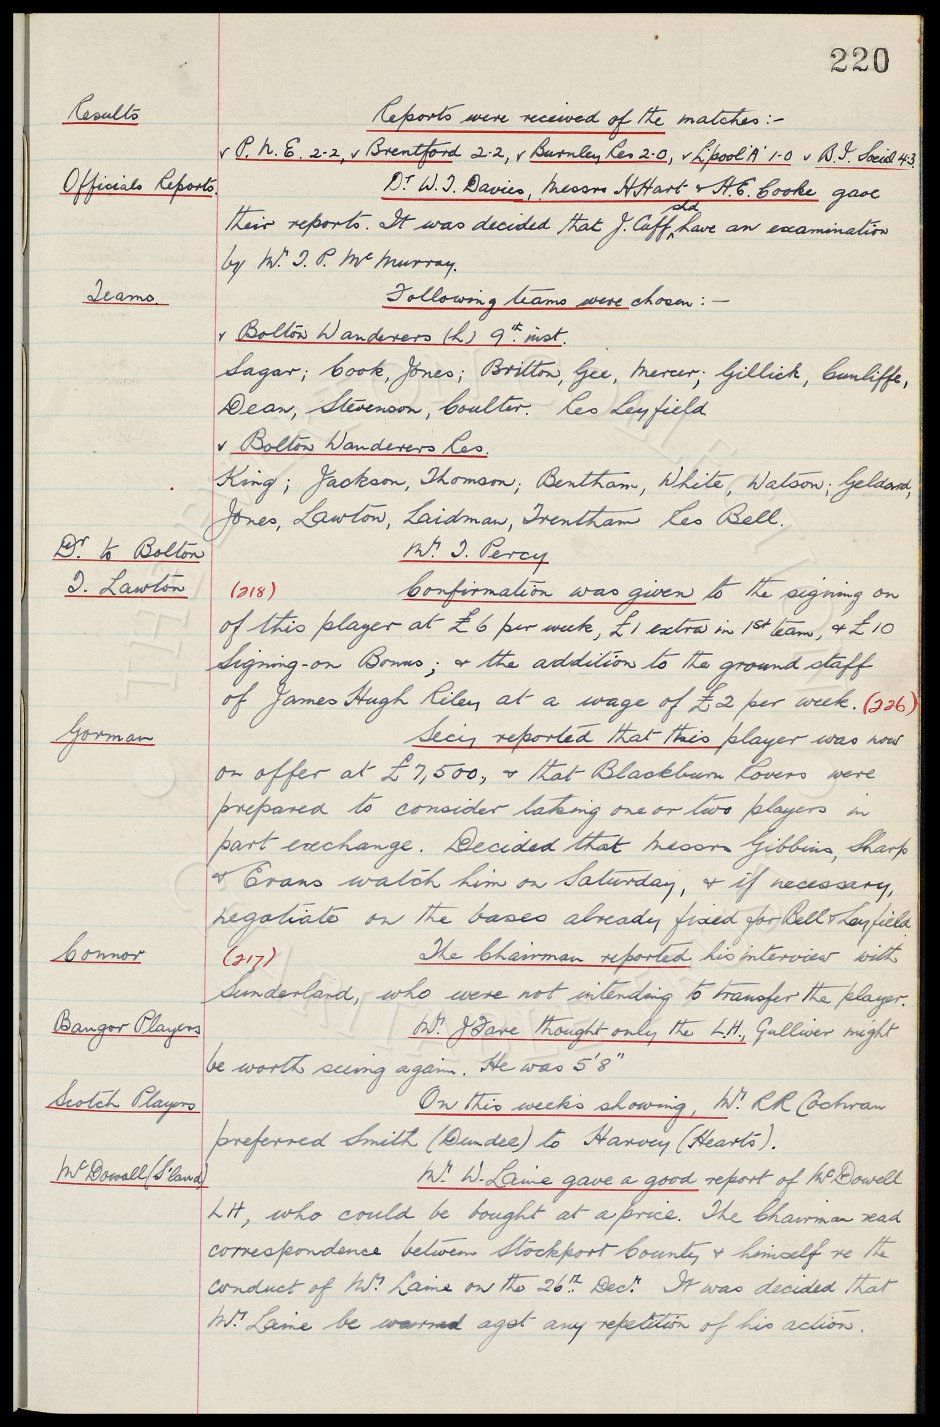 220
Results Reports were received of the matches :-
v P.N.E. 2-2, v Brentford 2-2, v Burnley Res 2-0, v L'pool 'A' 1-0 v B.I. Social 4-3.
Officials Reports. Dr W.J. Davies, Messrs H Hart & A.E. Cooke gave
their reports. It was decided that J. Cuff shd have an examination
by Mr. T. P. McMurray.
Teams. Following teams were chosen :-
v Bolton Wanderers (h) 9th inst.
Sagar; Cook, Jones; Britton, Gee, Mercer; Gillick, Cunliffe,
Dean, Stevenson, Coulter. Res Leyfield
v Bolton Wanderers Res.
King; Jackson, Thomson; Bentham, White, Watson; Geldard,
Jones, Lawton, Laidman, Trentham Res Bell.
Dr. to Bolton Mr. T. Percy
T. Lawton (218) Confirmation was given to the signing on
of this player at £6 per week, £1 extra in 1st team, & £10
Signing-on Bonus; & the addition to the ground staff
of James Hugh Riley at a wage of £2 per week. (226)
Gorman Secy reported that this player was now
on offer at £7,500, & that Blackburn Rovers were
prepared to consider taking one or two players in
part exchange. Decided that Messrs Gibbins, Sharp
& Evans watch him on Saturday, & if necessary,
negotiate on the bases already fixed for Bell & Leyfield
Connor (217) The Chairman reported his interview with
Sunderland, who were not intending to transfer the player.
Bangor Players Mr. J Fare thought only the L.H., Gulliver might
be worth seeing again. He was 5'8"
Scotch Players On this week's showing, Mr. RR Cochran
preferred Smith (Dundee) to Harvey (Hearts).
McDowall (S'land) Mr. W. Laine gave a good report of McDowell
LH, who could be bought at a price. The Chairman read
correspondence between Stockport County & himself re the
conduct of Mr. Laine on the 26th Decr. It was decided that
Mr. Laine be warned agst any repetition of his action.